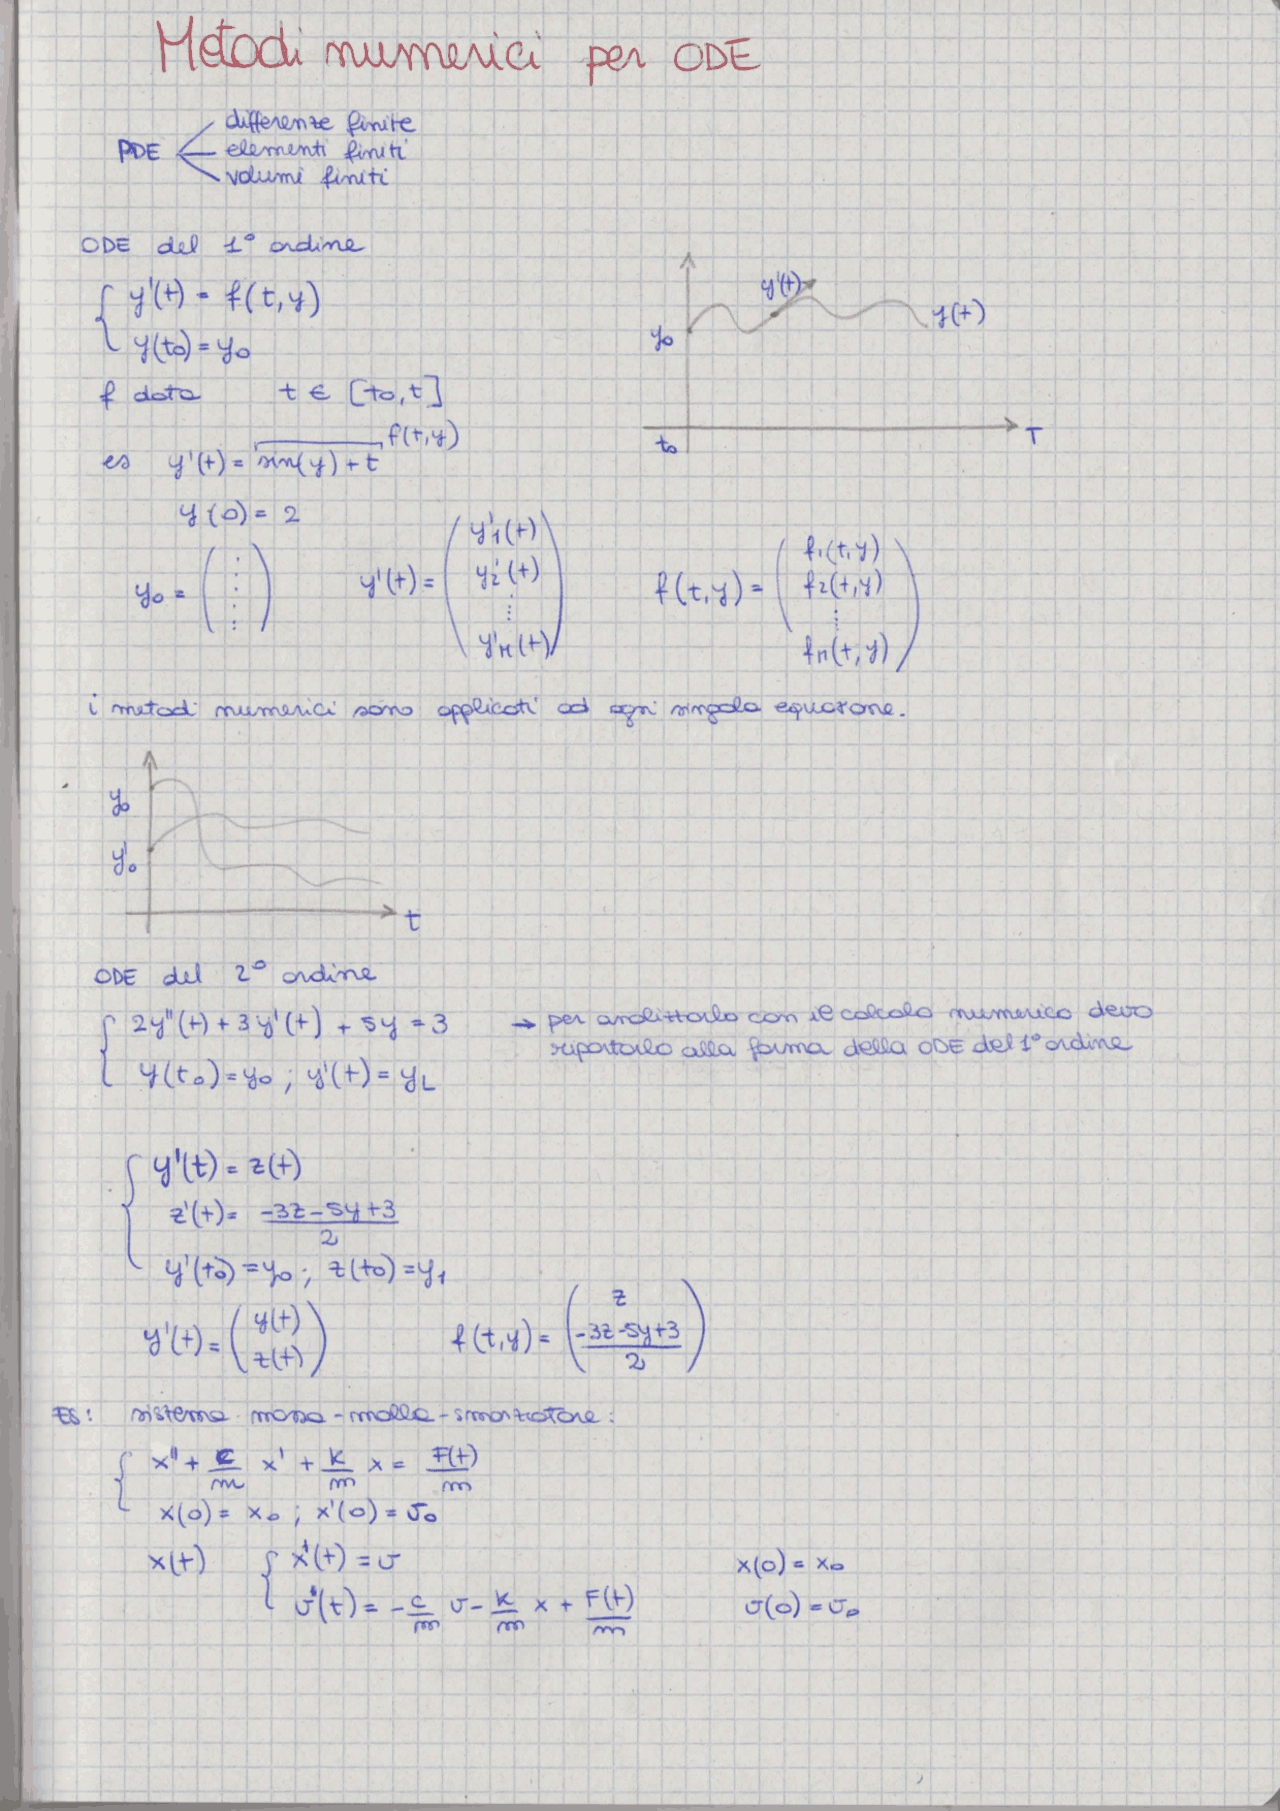 Metodi numerici per ODE
differenze finite
PDE elementi finiti
volumi finiti
ODE del 1° ordine
y'(t) = f(t,y)
y(t0) = y0
f data t ∈ [t0,t]
y'(t)
y(t)
y0
t0
T
f(t,y)
es y'(t) = sin(y) + t
y(0) = 2
y0 = ( ⋮ )
y'(t) = ( y'1(t) y2'(t) ⋮ y'n(t) )
f(t,y) = ( f1(t,y) f2(t,y) ⋮ fn(t,y) )
i metodi numerici sono applicati ad ogni singola equazone.
y0
y'0
t
ODE del 2° ordine
2y''(t) + 3y'(t) + 5y = 3 → per analizzarlo con il calcolo numerico devo
riportarlo alla forma della ODE del 1° ordine
y(t0) = y0 ; y'(t) = y1
y'(t) = z(t)
z'(t) = (-3z-5y+3)/2
y'(t0) = y0 ; z(t0) = y1
y'(t) = ( y(t) z(t) ) f(t,y) = ( z (-3z-5y+3)/2 )
ES: sistema massa-molla-smorzatore:
x'' + c/m x' + k/m x = F(t)/m
x(0) = x0 ; x'(0) = v0
x(t) x'(t) = v x(0) = x0
v'(t) = -c/m v - k/m x + F(t)/m v(0) = v0